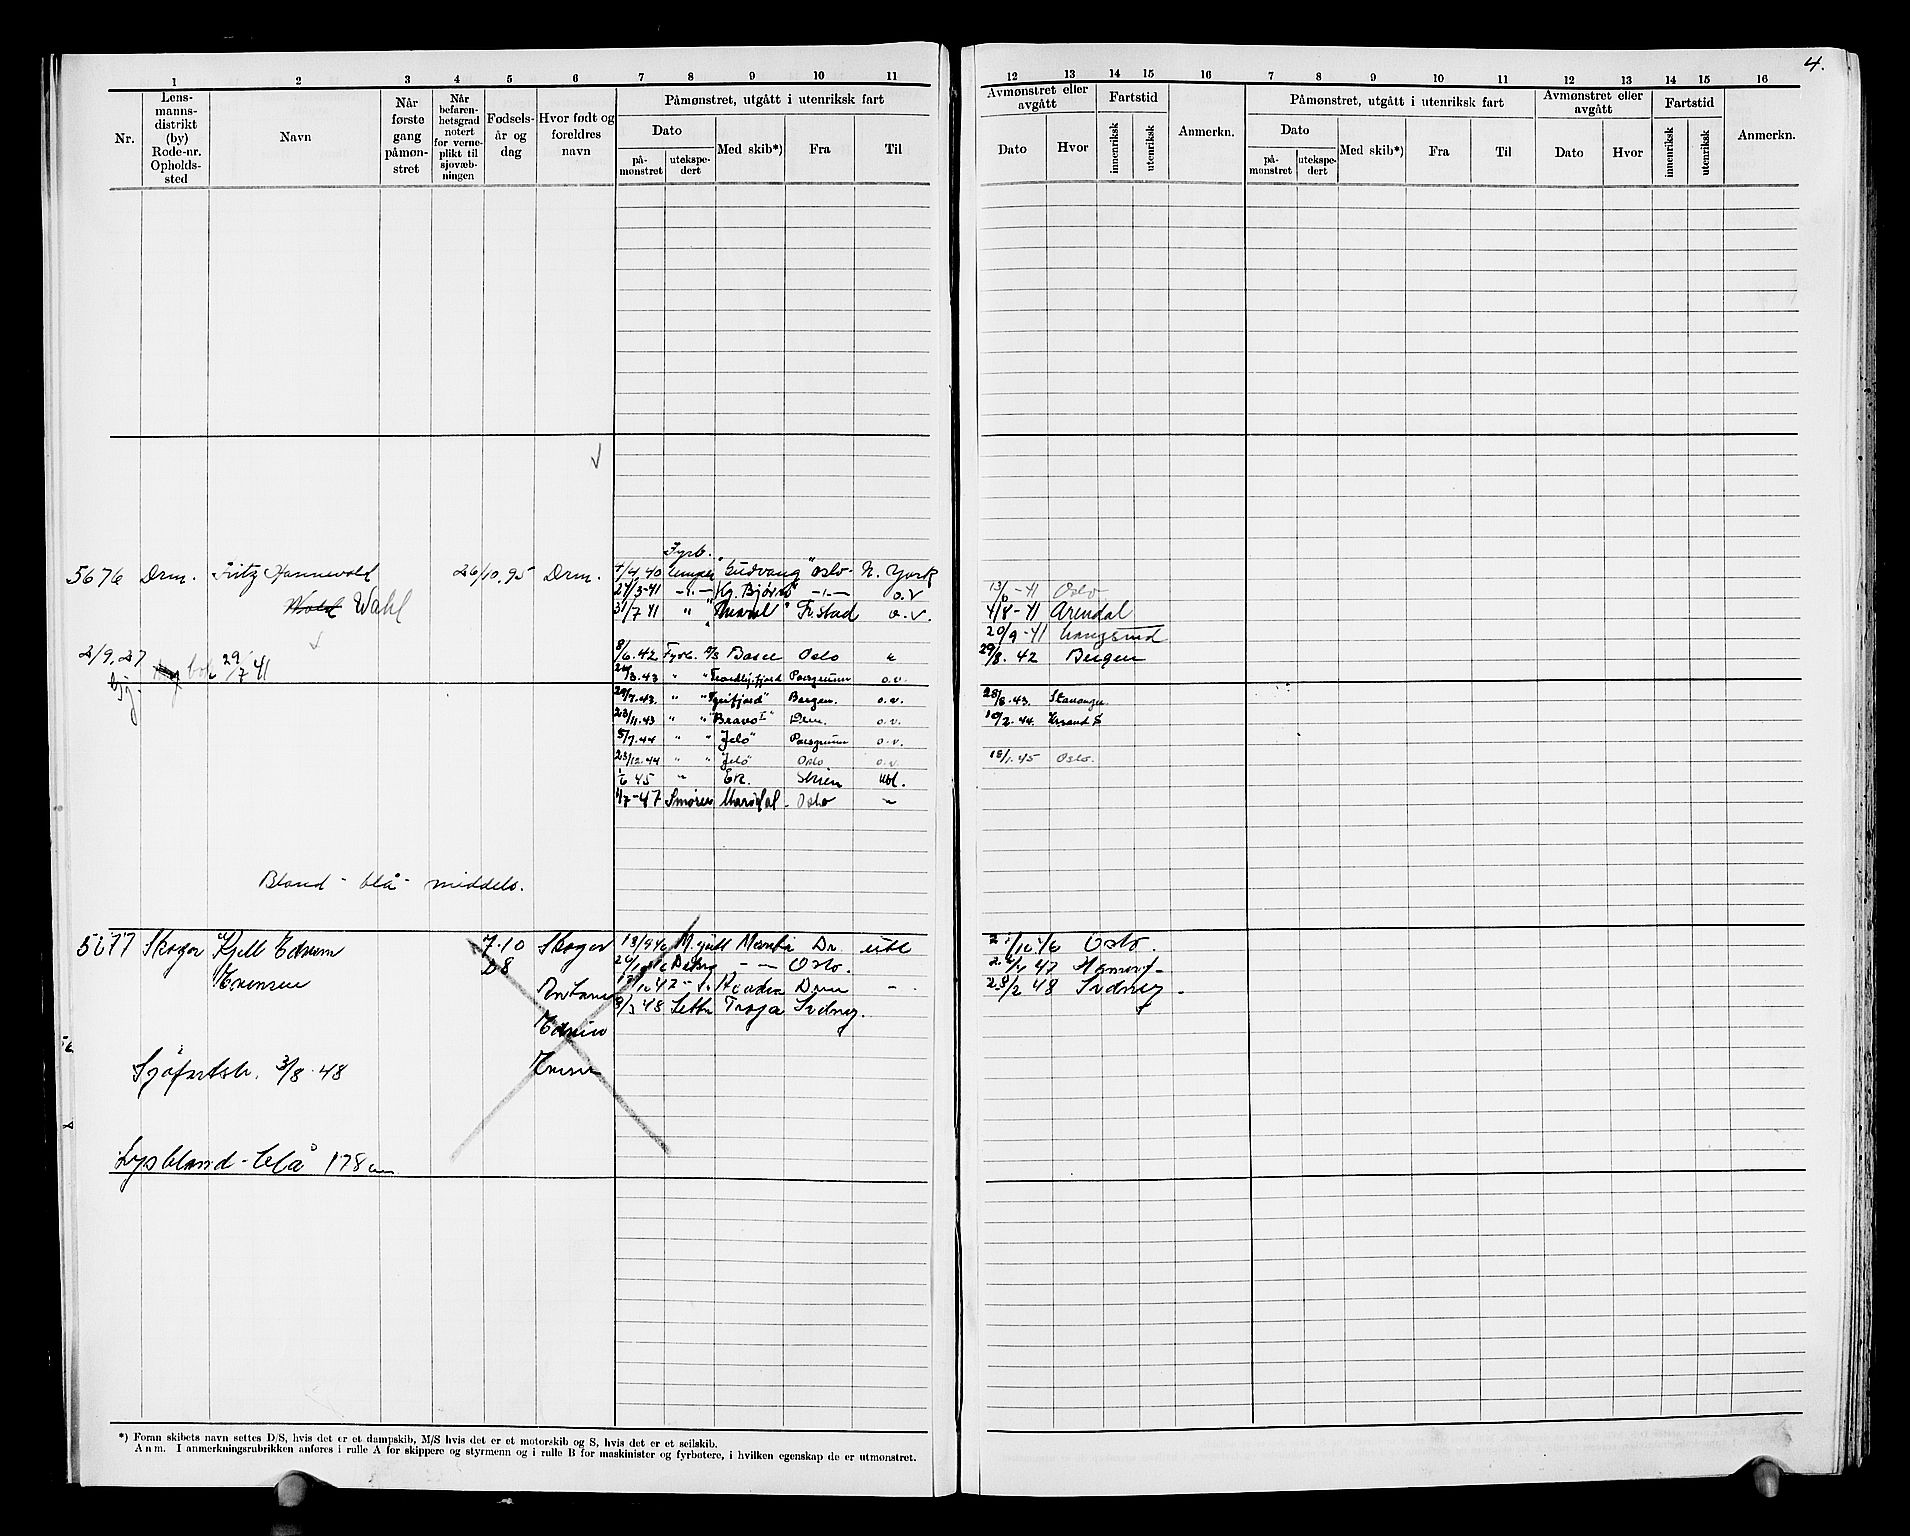 4.
1 2 3 4 5 6 7 8 9 10 11
Nr.
Lens-
manns-
distrikt
(by)
Rode-nr.
Opholds-
sted
Navn
Når
første
gang
påmøn-
stret
Når
befaren-
hetsgrad
notert
for verne-
plikt til
sjovæb-
ningen
Fødsels-
år og
dag
Hvor født og
foreldres
navn
Påmønstret, utgått i utenriksk fart
Dato
på-
mønstret
utekspe-
dert
Med skib*)
Fra
Til
12 13 14 15 16 7 8 9 10 11 12 13 14 15 16
Avmønstret eller
avgått
Dato
Hvor
Fartstid
innenriksk
utenriksk
Anmerkn.
Påmønstret, utgått i utenriksk fart
Dato
på-
mønstret
utekspe-
dert
Med skib*)
Fra
Til
Avmønstret eller
avgått
Dato
Hvor
Fartstid
innenriksk
utenriksk
Anmerkn.
Fyrb.
5676 Drm. Fritz Hannevold 26/10.95 Drm. 4/4.40 Lemper "Gudvang" Oslo - N. York
Wahl
27/3-41 -"- Kg. Bjørn -"- o.v 13/6-41 Oslo
31/7 41 " Fr.stad o.v. 4/8-41 Arendal
20/9-41 Langesund
2/9.27 bok 29/7 41
8/6.42 Fyrb. Oslo " 29/8.42 Bergen
24/3.43 " " Trondhj.fjord Porsgrunn o.v.
29/7.43. " "Tyrifjord" Bergen. o.v. 28/8.43. Stavanger
23/11.43 " "Bravo I" Drm. o.v. 10/2.44. Krsand S
5/7.44 " " "Jelø" Porsgrunn o.v.
23/12.44 " " "Jelø" Oslo o.v. 18/1.45 Oslo.
1/6 45 " Ek. Skien utl.
1/7-47 Smører Marsdal - Oslo "
Blond - blå - middels.
5677 Skoger Kjell Edvin 7.10 Skoger 13/9 46 M.gutt Dr. utl 2/10 46 Oslo.
Evensen 28 Oslo. 47
Drm 28/2 48 Sidney -
8/3 48 Lettm Troja Sidney.
Edvin
Evensen
Sjøfartsb. 3/8.48
Lysblond - blå 178 cm
*) Foran skibets navn settes D/S, hvis det er et dampskib, M/S hvis det er et motorskib og S, hvis det er et seilskib.
Anm. I anmerkningsrubrikken anføres i rulle A for skippere og styrmenn og i rulle B for maskinister og fyrbøtere, i hvilken egenskap de er utmønstret.